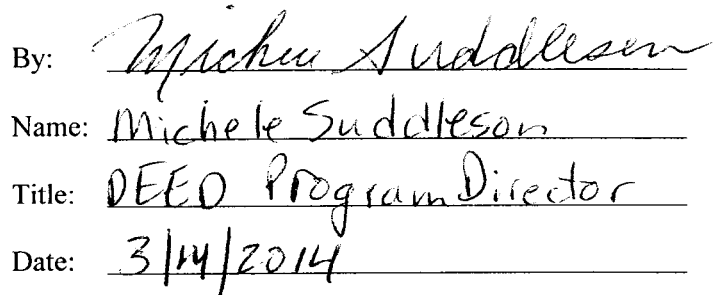 By: Michele Suddleson
Name: Michele Suddleson
Title: DEED Program Director
Date: 3/14/2014